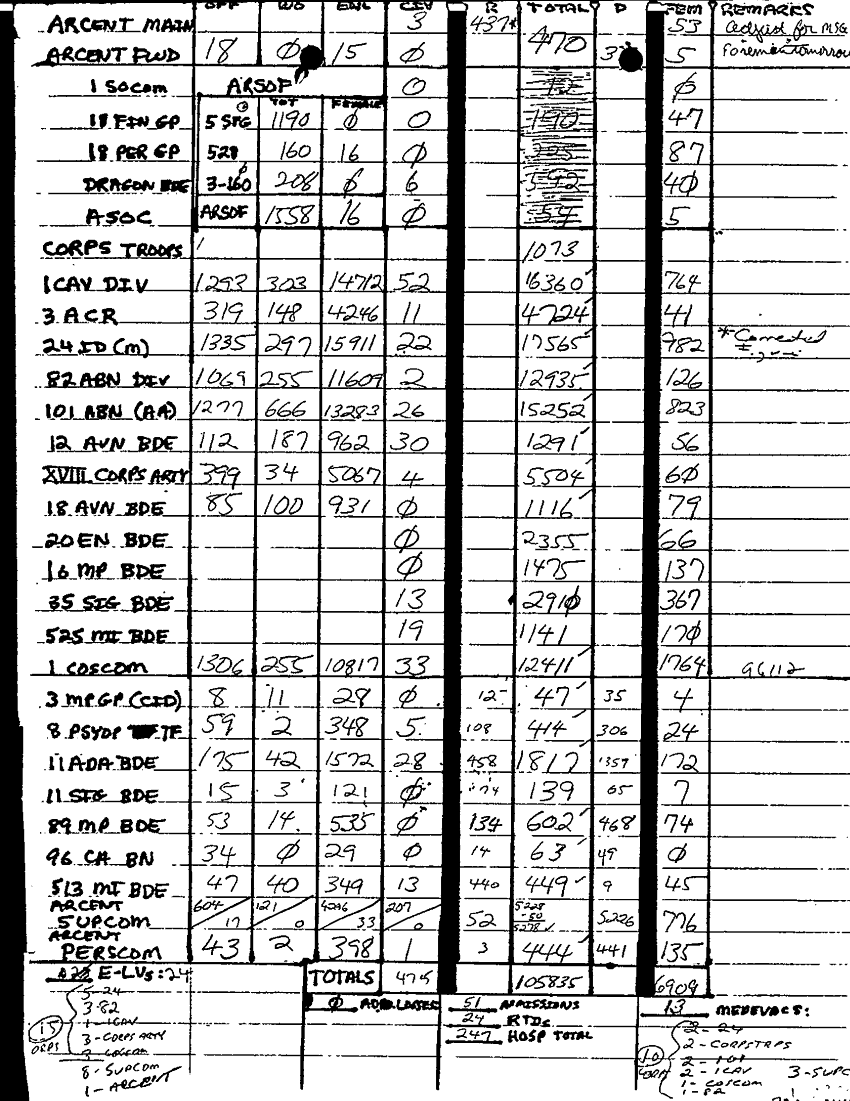 OFF WO ENL CIV R TOTAL D FEM REMARKS
ARCENT MAIN 3 437* 470 53 adjust for MSG
ARCENT FWD 18 Ø 15 Ø 3 5 Foreman tomorrow
1 SOCOM ARSOF O Ø
TOT FEMALE
18 FIN GP 5 SFG 1190 Ø O 47
18 PER GP 528 160 16 Ø 87
DRAGON BDE 3-160 208 Ø 6 592 4Ø
ASOC ARSOF 1558 16 Ø 59 5
CORPS TROOPS 1073
1 CAV DIV 1293 303 14712 52 16360 764
3 ACR 319 148 4246 11 4724 41
24 ID (M) 1335 297 15911 22 17565 782 * Corrected Figure
82 ABN DIV 1069 255 11609 2 12935 126
101 ABN (AA) 1277 666 13283 26 15252 823
12 AVN BDE 112 187 962 30 1291 56
XVIII CORPS ARTY 399 34 5067 4 5504 6Ø
18 AVN BDE 85 100 931 Ø 1116 79
20 EN BDE Ø 2355 66
16 MP BDE Ø 1475 137
35 SIG BDE 13 291Ø 367
525 MI BDE 19 1141 17Ø
1 COSCOM 1306 255 10817 33 12411 1764 96112
3 MP GP (CID) 8 11 28 Ø 12 47 35 4
8 PSYOP TF 59 2 348 5 108 414 306 24
11 ADA BDE 175 42 1572 28 458 1817 1359 172
11 SIG BDE 15 3 121 Ø 74 139 65 7
89 MP BDE 53 14 535 Ø 134 602 468 74
96 CA BN 34 Ø 29 Ø 14 63 49 Ø
513 MI BDE 47 40 349 13 440 449 9 45
ARCENT 604 121 4296 207 5228
SUPCOM 17 0 33 0 52 -50 5278 5226 776
ARCENT
PERSCOM 43 2 398 1 3 444 441 135
E-LVs: 24 TOTALS 475 105835 6909
5-24 Ø ADD. LOSSES 51 ADMISSIONS 13 MEDEVACS:
3-82 24 RTDs 2-24
1-1CAV 247 HOSP TOTAL 2-CORPSTRPS
15 ORPS 3-CORPS ARTY 10
3-COSCOM 2-1CAV 3-SUPC
8-SUPCOM 1-COSCOM
1-ARCENT 1-82